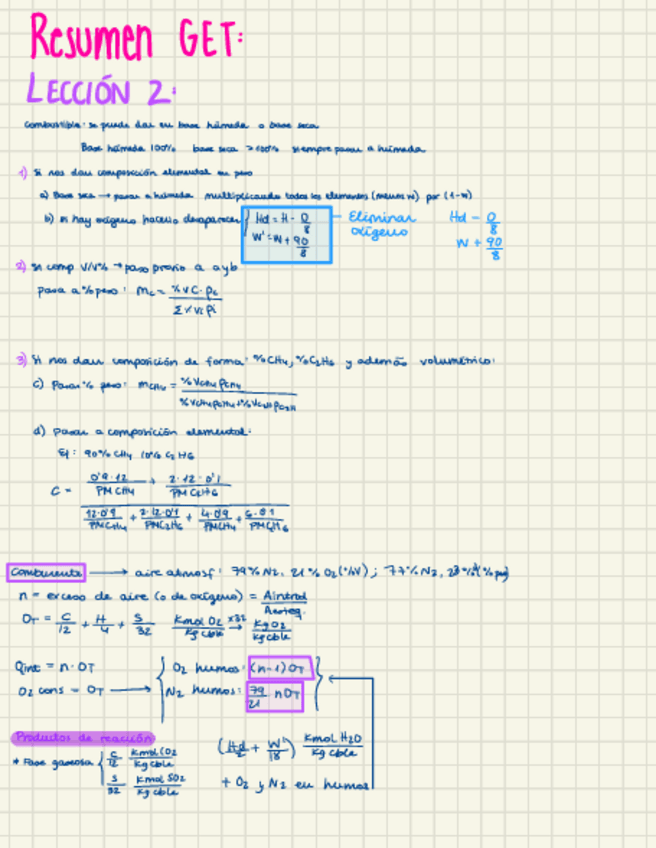 Resumen GET:
LECCIÓN 2:
Combustible: se puede dar en base húmeda o base seca
Base húmeda 100% base seca >100% siempre pasar a húmeda
1) Si nos dan composición elemental en peso
a) Base seca → pasar a húmeda multiplicando todos los elementos (menos w) por (1-w)
b) si hay oxígeno hacerlo desaparecer { Hd = H - O/8
W' = W + 9O/8
Eliminar oxígeno
Hd - O/8
W + 9O/8
2) Si comp V/V% → paso previo a a y b
pasar a % peso: mc = %Vc·ρc / Σ%Vi ρi
3) Si nos dan composición de forma: %CH4, %C2H6 y además volumétrico:
c) Pasar % peso: mCH4 = %VCH4 ρCH4 / %VCH4 ρCH4 + %VC2H6 ρC2H6
d) pasar a composición elemental:
Ej: 90% CH4 10% C2H6
C = (0'9·12 / PMCH4 + 2·12·0'1 / PMC2H6) / (12·0'9 / PMCH4 + 2·12·0'1 / PMC2H6 + 4·0'9 / PMCH4 + 6·0'1 / PMC2H6)
Comburente → aire atmosf: 79% N2, 21% O2 (%V); 77% N2, 23%
n = exceso de aire (o de oxígeno) = Aintrod / Ateoq.
OT = C/12 + H/4 + S/32 Kmol O2 / Kg cble ×32 → Kg O2 / Kg cble
Oint = n·OT
O2 cons = OT →
{ O2 humos: (n-1)OT
N2 humos: 79/21 nOT }
Productos de reacción
* Fase gaseosa { C/12 Kmol CO2 / Kg cble
S/32 Kmol SO2 / Kg cble
(Hd/2 + W'/18) Kmol H2O / Kg cble
+ O2 y N2 en humos